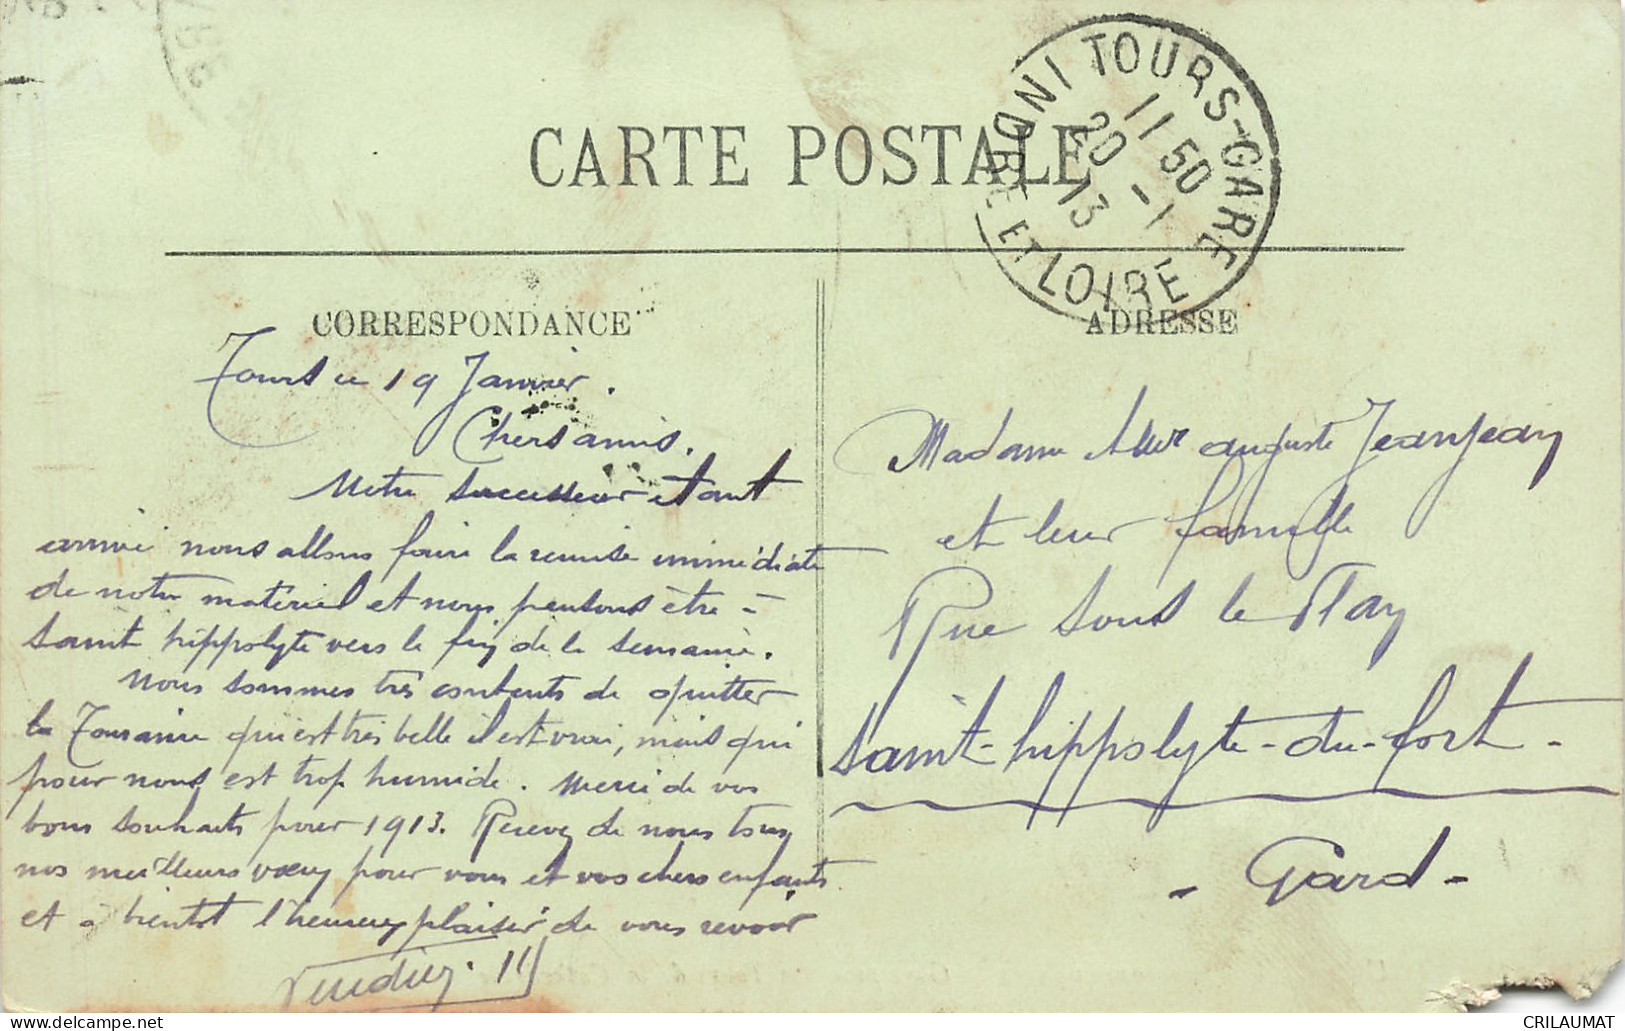 CARTE POSTALE
TOURS-GARE
11 50
20 - 1
13
INDRE ET LOIRE
CORRESPONDANCE
ADRESSE
Tours ce 19 Janvier.
Chers amis.
Notre successeur étant
arrivé nous allons faire la remise immédiate
de notre matériel et nous pensons être à
Saint hippolyte vers la fin de la semaine.
Nous sommes très contents de quitter
la Touraine qui est très belle il est vrai, mais qui
pour nous est trop humide. Merci de vos
bons souhaits pour 1913. Recevez de nous tous
nos meilleurs vœux pour vous et vos chers enfants
et à bientôt l'heureux plaisir de vous revoir
Madame auguste Jeanjean
et leur famille
Rue sous le Play
Saint-hippolyte-du-fort-
- Gard -
CRILAUMAT